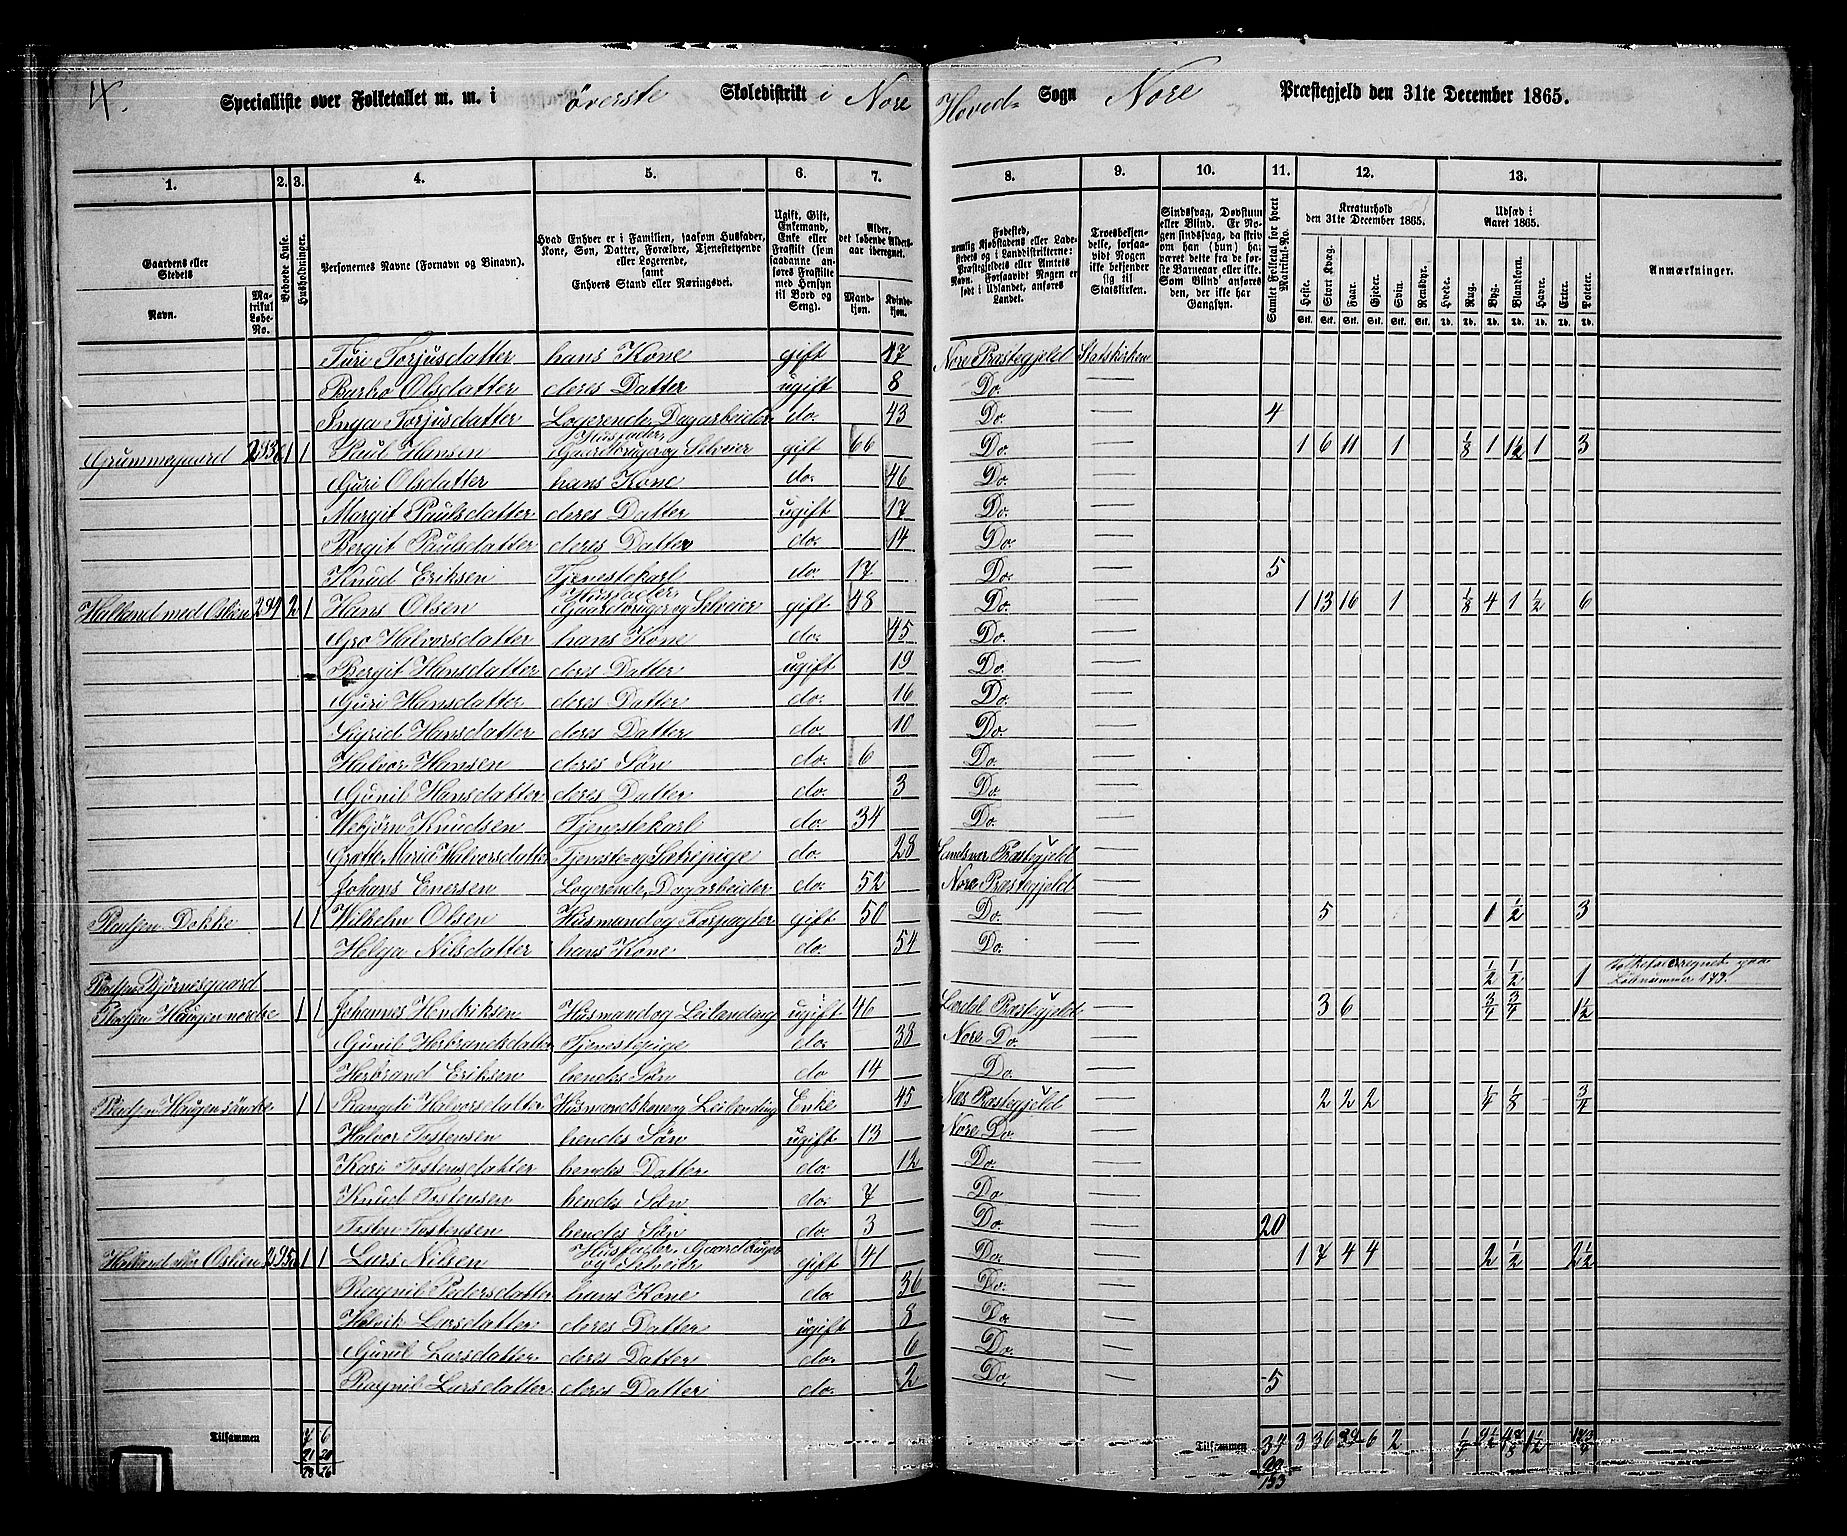 4.
Specialliste over Folketallet m. m. i øverste Skoledistrikt i Nore Hoved- Sogn Nore Præstegjeld den 31te December 1865.
1. 2. 3. 4. 5. 6. 7. 8. 9. 10. 11. 12. 13.
Gaardens eller Stedets
Navn.
Matrikul Løbe-No.
Beboede Huse.
Husholdninger.
Personernes Navne (Fornavn og Binavn).
Hvad Enhver er i Familien, saasom Husfader, Kone, Søn, Datter, Forældre, Tjenestetyende eller Logerende, samt Enhvers Stand eller Næringsvei.
Ugift, Gift, Enkemand, Enke eller Fraskilt (som saadanne anføres Fraskilte med Hensyn til Bord og Seng).
Alder, det løbende Aldersaar iberegnet.
Mandkjøn.
Kvindekjøn.
Fødested, nemlig Kjøbstadens eller Ladestedets og i Landdistrikterne: Præstegjeldets eller Amtets Navn. Forsaavidt Nogen er født i Udlandet, anføres Landet.
Troesbekjendelse, forsaavidt Nogen ikke bekjender sig til Statskirken.
Sindssvag, Døvstum eller Blind. Er Nogen sindssvag, da skriv om han (hun) har været dette fra de første Barneaar eller ikke. Som Blind anføres den, der ikke har Gangsyn.
Samlet Folketal for hvert Matrikul-No.
Kreaturhold den 31te December 1865.
Heste. Stort Kvæg. Faar. Gjeder. Svin. Rensdyr.
Udsæd i Aaret 1865.
Hvede. Rug. Byg. Blandkorn. Havre. Erter. Poteter.
Anmærkninger.
Turi Torjusdatter hans Kone gift 47 Nore Præstegjeld Statskirken
Barbro Olsdatter deres Datter ugift 8 Do.
Inga Torjusdatter Logerende, Dagarbeider do. 43 Do. 4
Grummegaard 293 1 1 Paul Hansen Husfader, Gaardbruger og Selveier gift 66 Do. 1 6 11 1 1/8 1 1 1/2 1 3
Guri Olsdatter hans Kone do. 46 Do.
Margit Paulsdatter deres Datter ugift 17 Do.
Bergit Paulsdatter deres Datter do. 14 Do.
Knud Eriksen Tjenestekarl do. 17 Do. 5
Halland med Oslien 294 2 1 Hans Olsen Husfader, Gaardbruger og Selveier gift 48 Do. 1 13 16 1 1/8 4 1 1/2 6
Gro Halvorsdatter hans Kone do. 45 Do.
Bergit Hansdatter deres Datter ugift 19 Do.
Guri Hansdatter deres Datter do. 16 Do.
Sigrid Hansdatter deres Datter do. 10 Do.
Halvor Hansen deres Søn do. 6 Do.
Gunil Hansdatter deres Datter do. 3 Do.
Webjørn Knudsen Tjenestekarl do. 34 Do.
Grethe Marie Halvorsdatter Tjeneste- og Sæterpige do. 28 Sandsvær Præstegjeld
Johans Eversen Logerende, Dagarbeider do. 52 Nore Præstegjeld
Pladsen Dokke 1 1 Wilhelm Olsen Husmand og Forpagter gift 50 Do. 5 1 1/2 3
Helga Nilsdatter hans Kone do. 54 Do.
Pladsen Bjørnesgaard 1/2 1/2 1 Folkene regnet paa Løbenummer 149.
Pladsen Haugen nordre 1 1 Johannes Hendriksen Husmand og Leilending ugift 46 Lærdal Præstegjeld 3 6 3/4 3/4 1 1/2
Gunil Herbrandsdatter Tjenestepige do. 38 Nore Do.
Herbrand Eriksen hendes Søn do 14 Do.
Pladsen Haugen søndre 1 1 Rangdi Halvorsdatter Husmandskone og Leilending Enke 45 Næs Præstegjeld 2 2 2 1/4 1/8 3/4
Halvor Tostensen hendes Søn ugift 13 Nore Do.
Kari Tostensdatter hendes Datter do. 12 Do.
Knud Tostensen hendes Søn do. 7 Do
Tosten Tostensen hendes Søn do. 3 Do. 20
Halland eller Oslien 295 1 1 Lars Nilsen Husfader, Gaardbruger og Selveier gift 41 Do. 1 7 4 4 2 1/2 2 1/2
Ragnil Pedersdatter hans Kone do. 36 Do.
Helvik Larsdatter deres Datter ugift 8 Do
Gunil Larsdatter deres Datter do. 6 Do.
Ragnil Larsdatter deres Datter do. 2 Do. 5
Tilsammen 7 6 Tilsammen 34 3 36 39 6 2
21 20 99
28 26 133